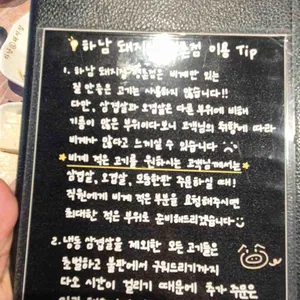 하남 돼지집 점 이용 Tip
1. 하남 돼지집 은 비계만 있는
잘 만든 고기는 사용하지 않습니다!!
다만, 삼겹살과 오겹살은 다른 부위에 비해
기름이 많은 부위이다보니 고객님의 취향에 따라
비계가 많다고 느끼실 수 있습니다
비계 적은 고기를 원하시는 고객님께서는
삼겹살, 오겹살, 모듬한판 주문하실 때!
직원에게 비계 적은 부분을 요청해주시면
최대한 적은 부위로 준비해드리겠습니다
2. 냉동 삼겹살을 제외한 모든 고기들은
초벌하고 불판에서 구워드리기까지
다소 시간이 걸리기 때문에 추가 주문은